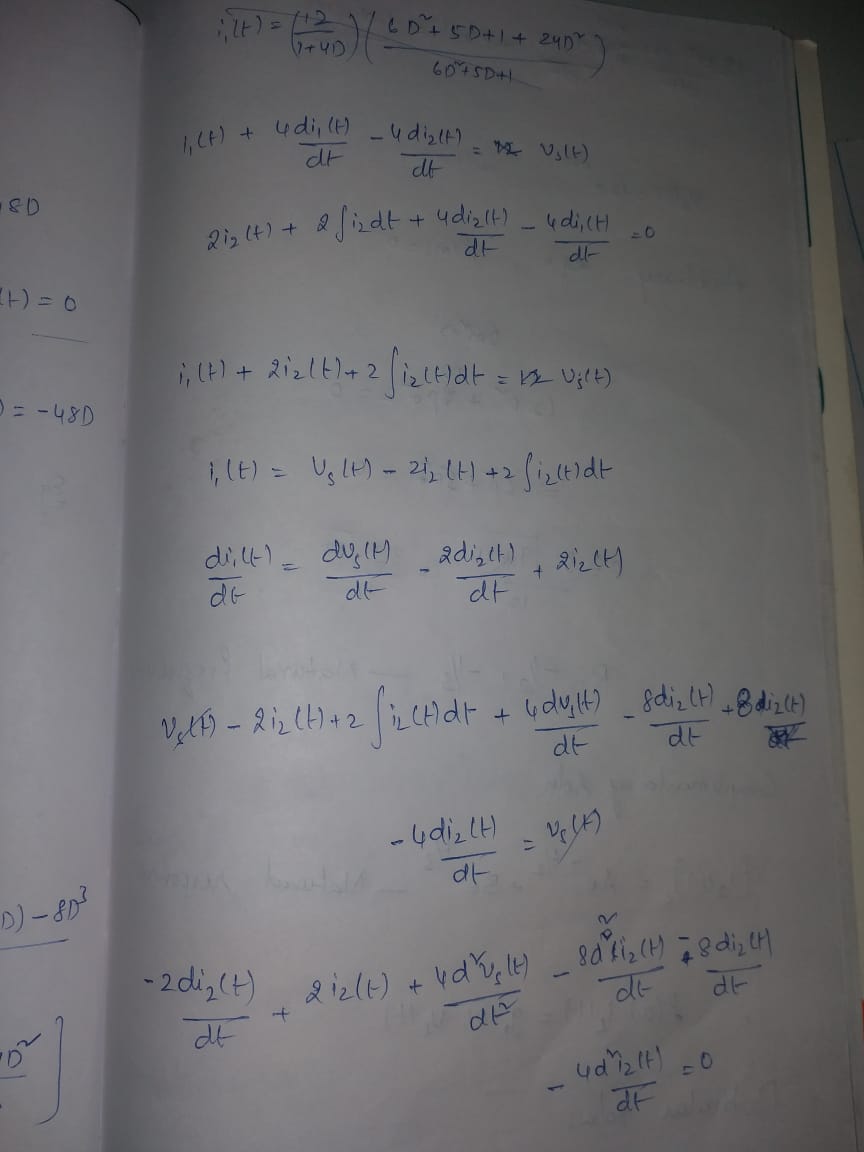 i₁(t) = (12/1+4D) (6D²+5D+1+24D²/6D²+5D+1)
i₁(t) + 4di₁(t)/dt - 4di₂(t)/dt = vₛ(t)
8D
2i₂(t) + 2∫i₂dt + 4di₂(t)/dt - 4di₁(t)/dt = 0
(t) = 0
i₁(t) + 2i₂(t) + 2∫i₂(t)dt = vₛ(t)
) = -48D
i₁(t) = vₛ(t) - 2i₂(t) + 2∫i₂(t)dt
di₁(t)/dt = dvₛ(t)/dt - 2di₂(t)/dt + 2i₂(t)
vₛ(t) - 2i₂(t) + 2∫i₂(t)dt + 4dvₛ(t)/dt - 8di₂(t)/dt + 8i₂(t)
- 4di₂(t)/dt = vₛ(t)
D) - 8D³
-2di₂(t)/dt + 2i₂(t) + 4d²vₛ(t)/dt² - 8d²i₂(t)/dt - 8di₂(t)/dt
D² ]
- 4d²i₂(t)/dt = 0